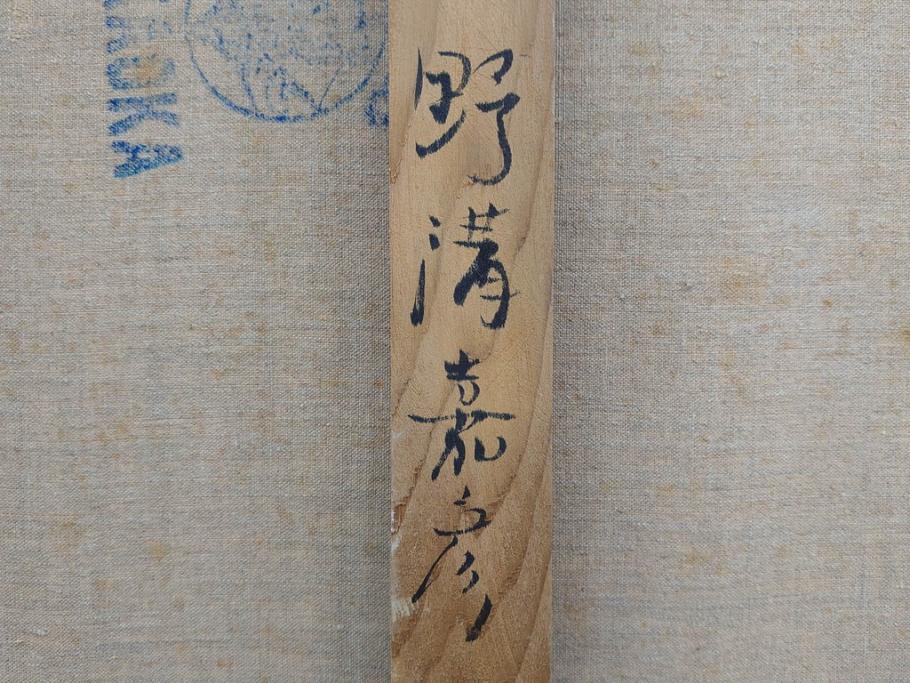 野溝嘉彦
OKA